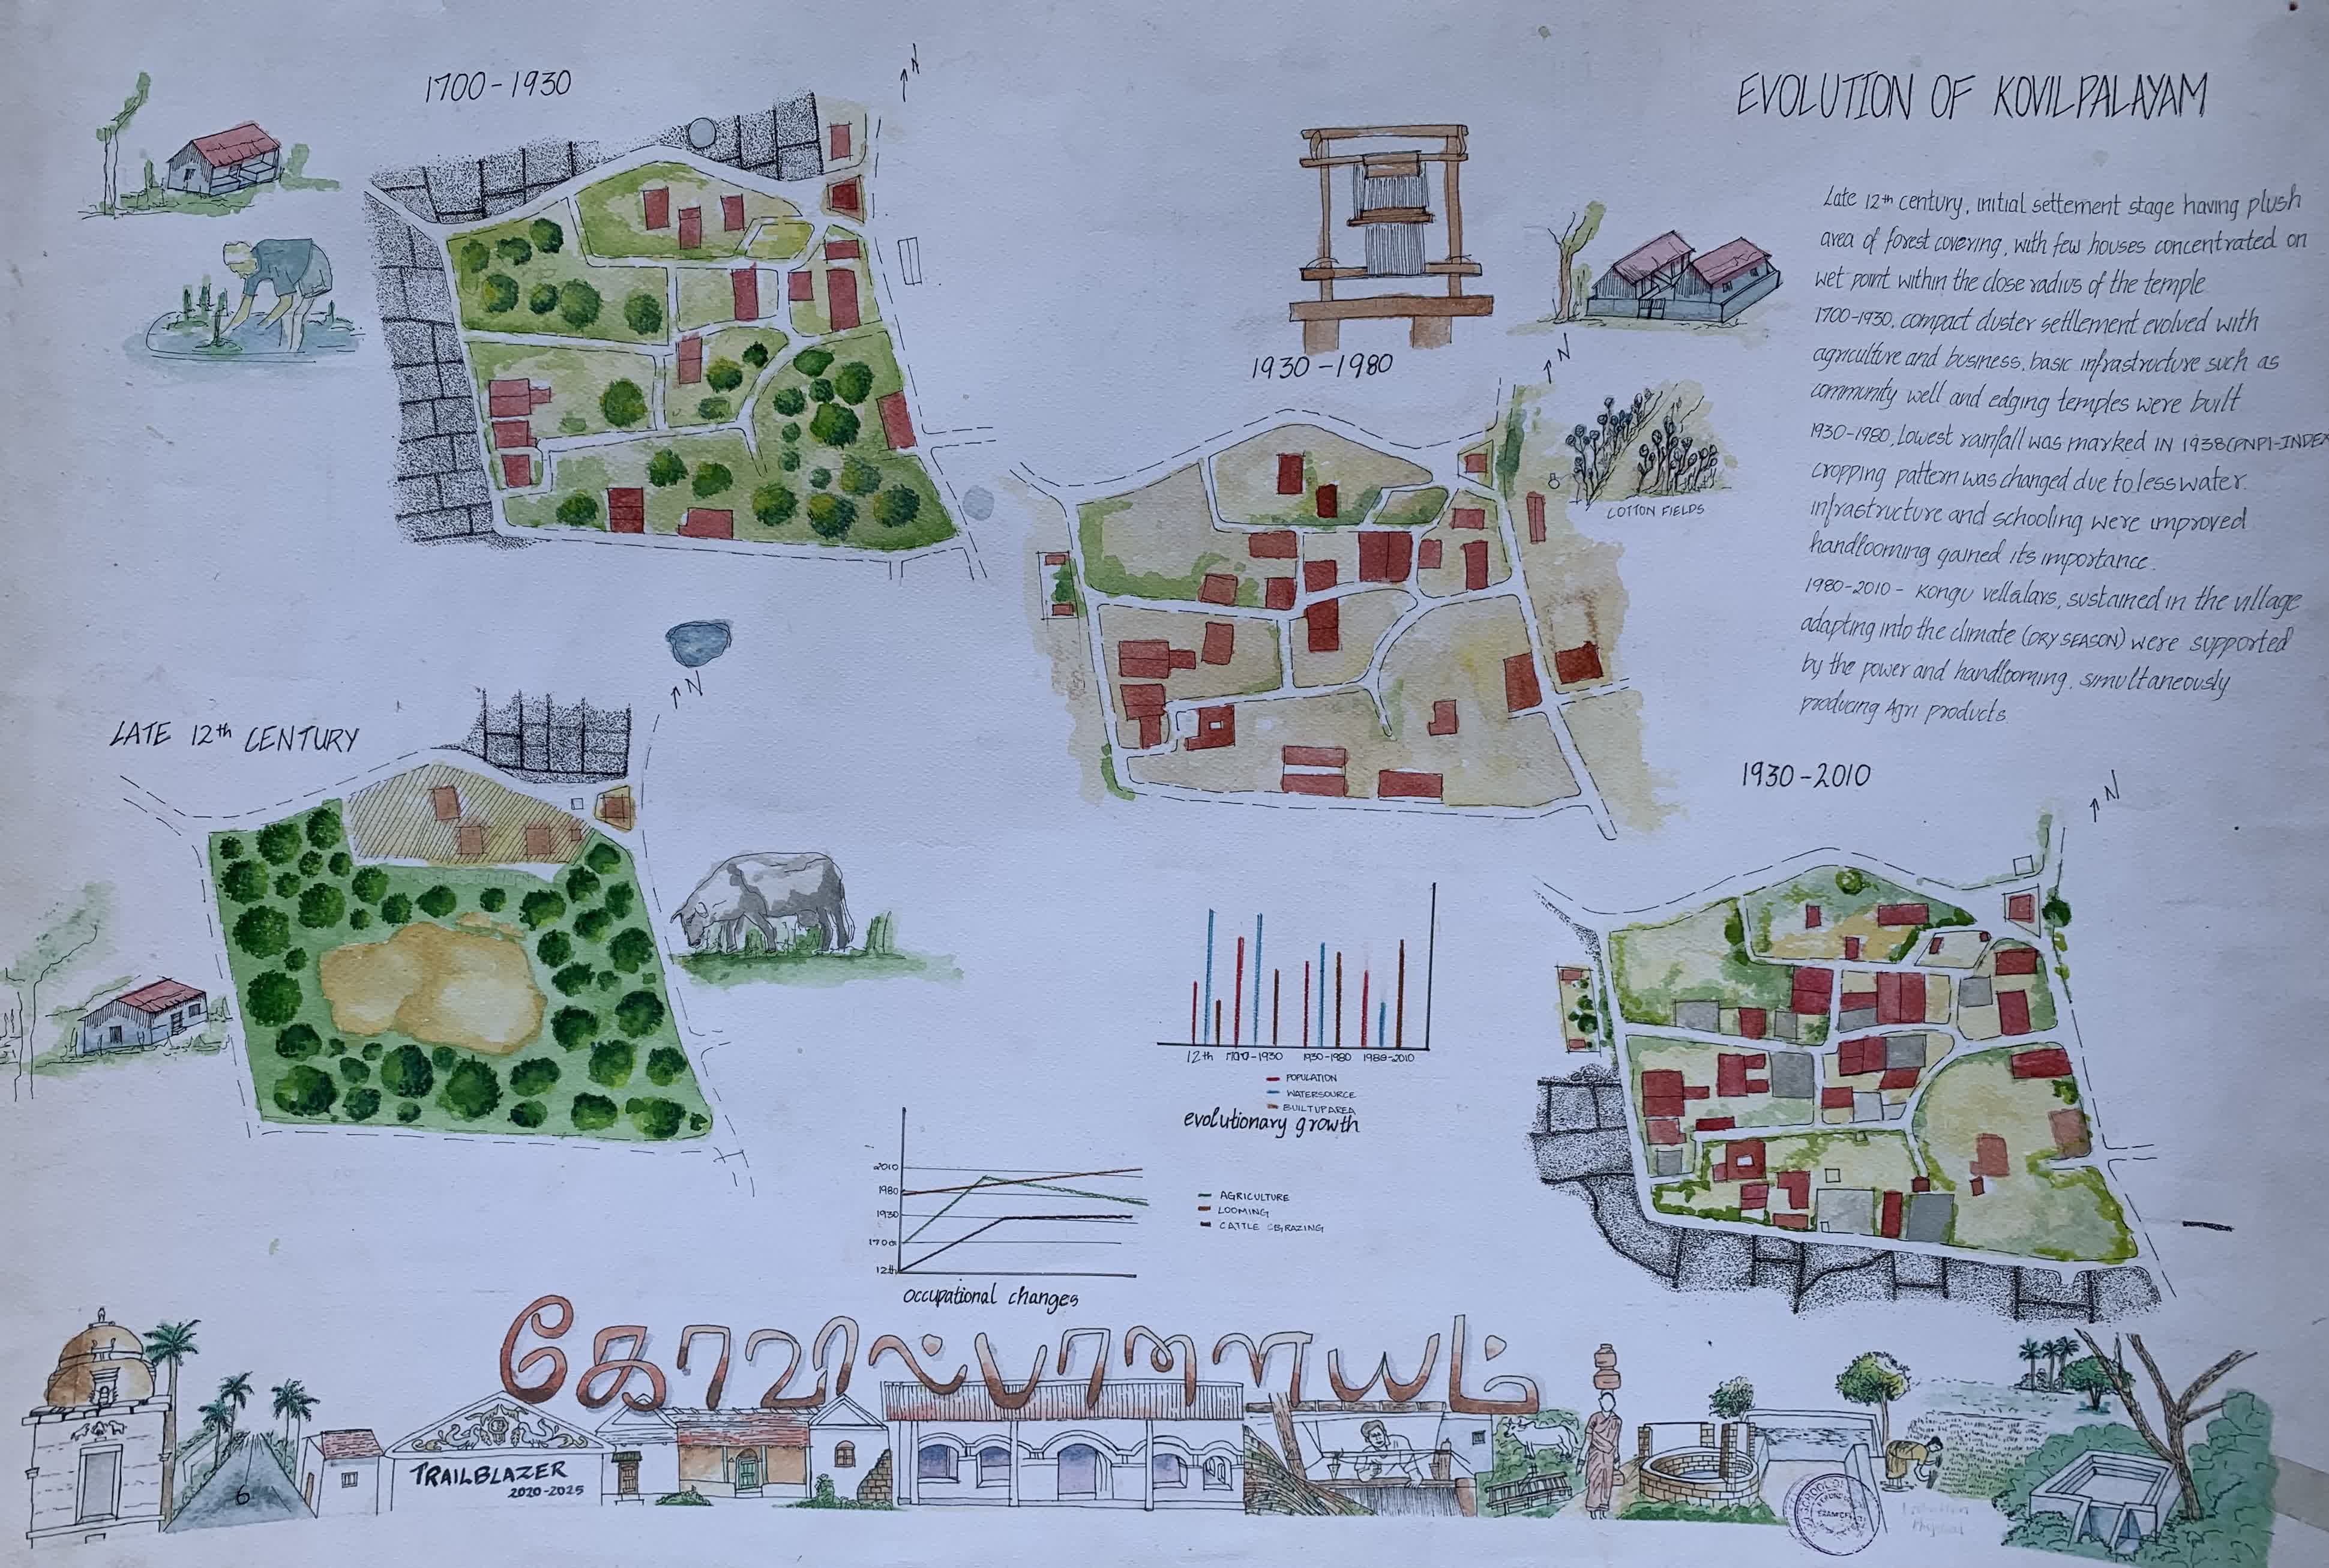 EVOLUTION OF KOVILPALAYAM
Late 12th century, initial settement stage having plush
area of forest covering, with few houses concentrated on
wet point within the close radius of the temple
1700-1930, compact cluster settlement evolved with
agriculture and business, basic infrastructure such as
community well and edging temples were built
1930-1980, Lowest rainfall was marked IN 1938(PNPI-INDEX
cropping pattern was changed due to less water.
infrastructure and schooling were improved
handlooming gained its importance.
1980-2010 - Kongu vellalars, sustained in the village
adapting into the climate (DRY SEASON) were supported
by the power and handlooming, simultaneously
producing Agri products.
1700-1930
N
1930-1980
N
COTTON FIELDS
LATE 12th CENTURY
N
1930-2010
N
12th 1700-1930 1930-1980 1980-2010
POPULATION
WATERSOURCE
BUILTUP AREA
evolutionary growth
2010
1980
1930
1700
12th
AGRICULTURE
LOOMING
CATTLE GRAZING
occupational changes
கோவில்பாளையம்
TRAILBLAZER
2020-2025
6